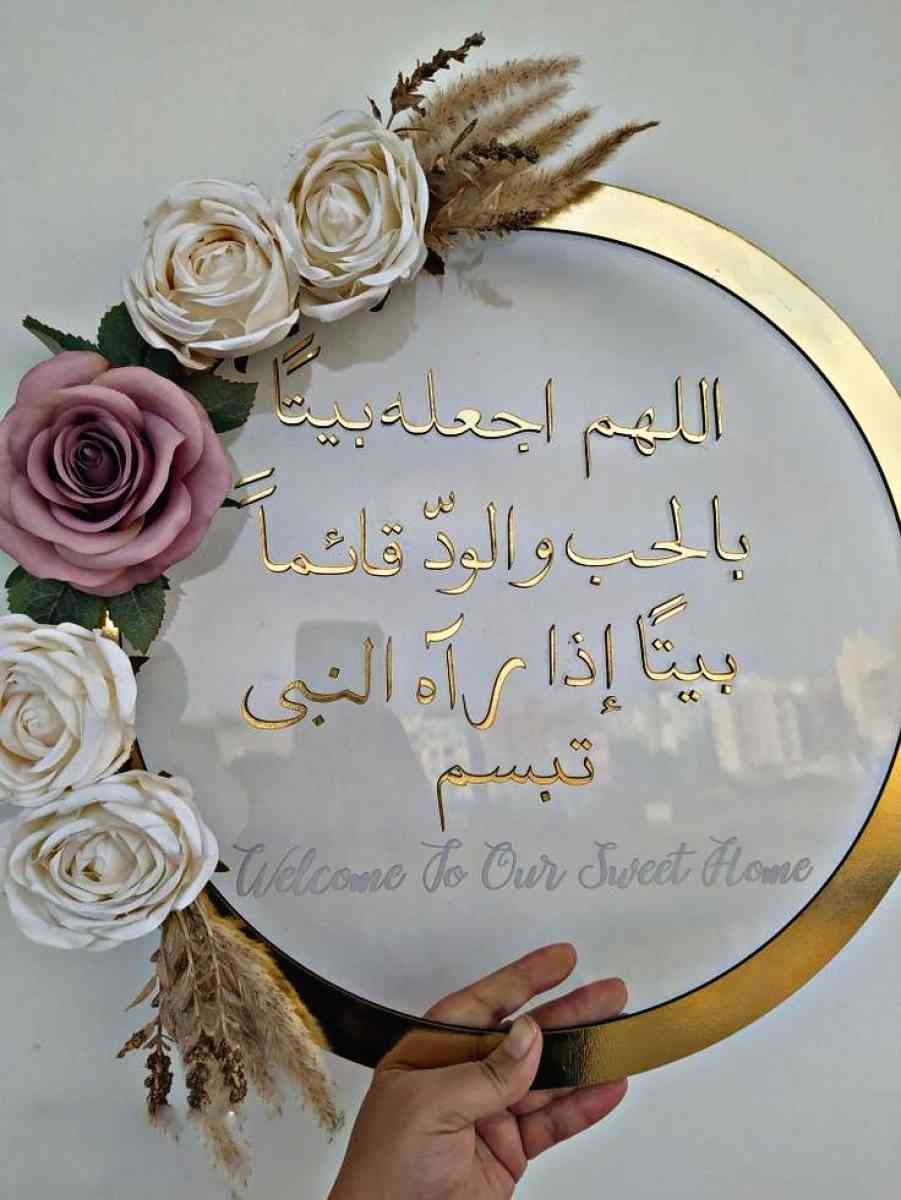 اللهم اجعله بيتًا
بالحب والودّ قائماً
بيتًا إذا رآه النبي
تبسم
Welcome To Our Sweet Home